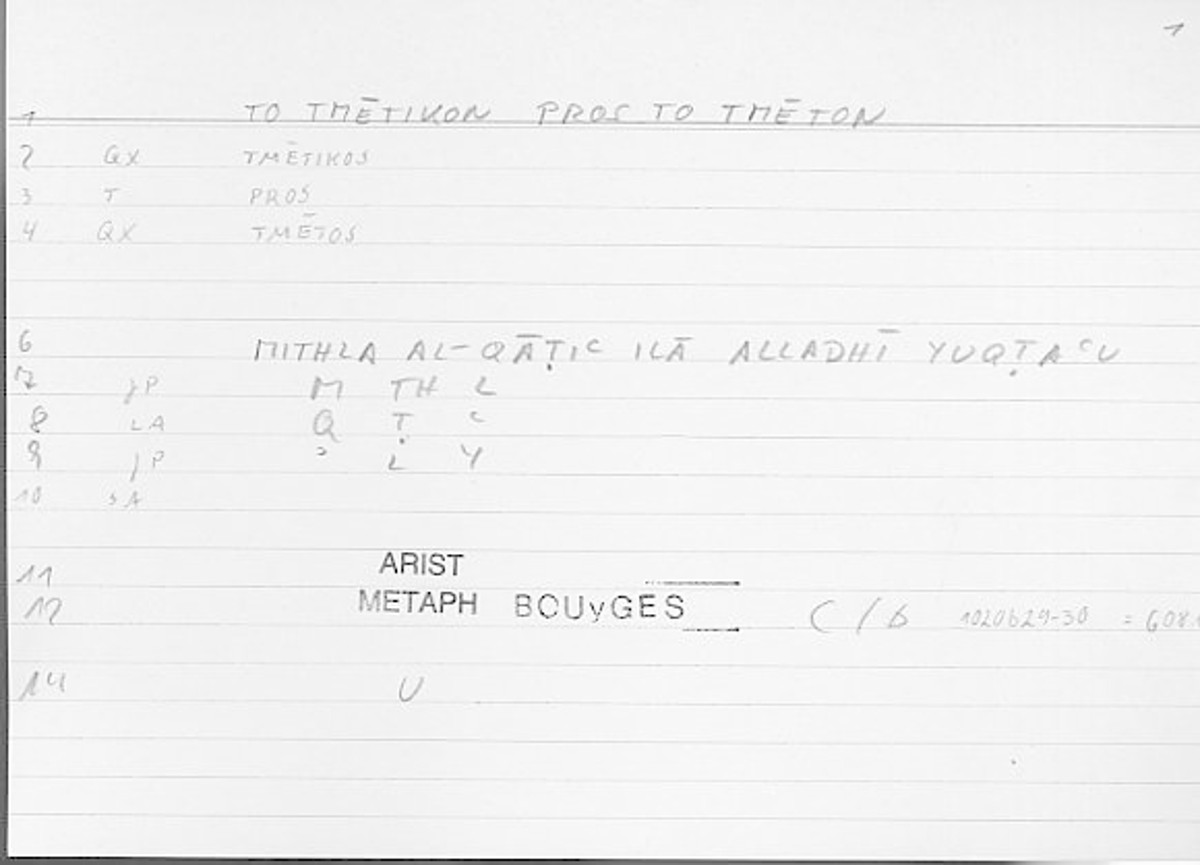 1
1 TO TMĒTIKON PROS TO TMĒTON
2 QX TMĒTIKOS
3 T PROS
4 QX TMĒTOS
6 MITHLA AL-QĀṬIC ILĀ ALLADHĪ YUQṬACU
7 JP M TH L
8 LA Q Ṭ C
9 JP ʾ L Y
10 SA
11 ARIST
12 METAPH BOUyGES C/Δ 1020b29-30 = 608.
14 U